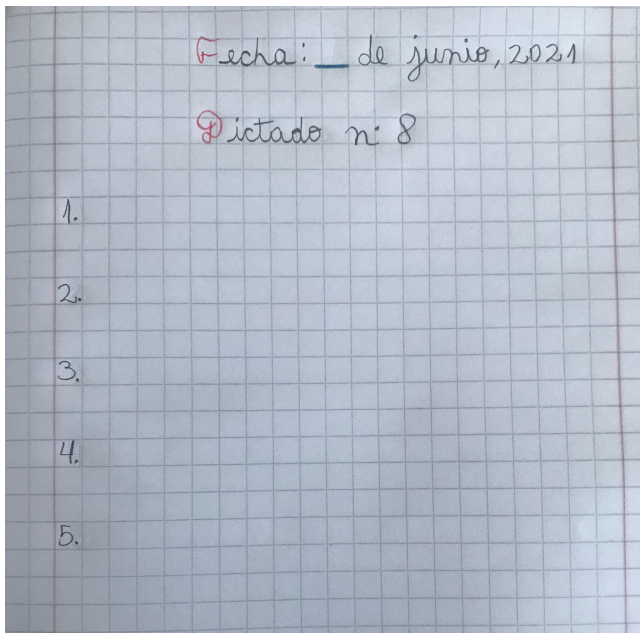 Fecha: __ de junio, 2021
Dictado n° 8
1.
2.
3.
4.
5.